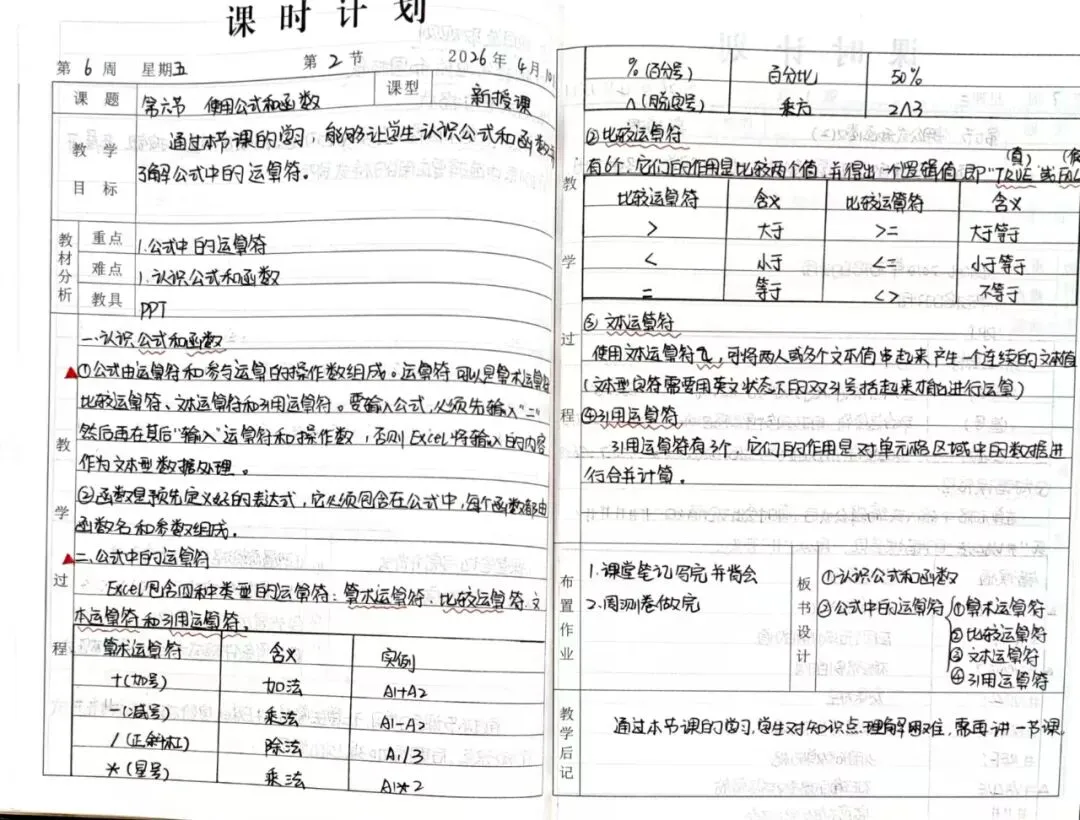 课时计划
第6周 星期五 第2节 2026年4月10
课题 第六节 使用公式和函数 课型 新授课
教学目标
通过本节课的学习,能够让学生认识公式和函数
了解公式中的运算符。
教材分析
重点 1.公式中的运算符
难点 1.认识公式和函数
教具 PPT
教学过程
一.认识公式和函数
①公式由运算符和参与运算的操作数组成。运算符可以是算术运算符
比较运算符、文本运算符和引用运算符。要输入公式,必须先输入"="
然后再在其后"输入"运算符和操作数,否则Excel将输入的内容
作为文本型数据处理。
②函数是预先定义好的表达式,它必须包含在公式中,每个函数都由
函数名和参数组成。
二.公式中的运算符
Excel包含四种类型的运算符:算术运算符、比较运算符、文
本运算符和引用运算符.
算术运算符 含义 实例
+(加号) 加法 A1+A2
-(减号) 乘法 A1-A2
/(正斜杠) 除法 A1/3
*(星号) 乘法 A1*2
%(百分号) 百分比 50%
∧(脱字号) 乘方 2∧3
教学过程
②比较运算符
(真) (假
有6个,它们的作用是比较两个值,并得出一个逻辑值,即"TRUE"或FAL
比较运算符 含义 比较运算符 含义
> 大于 >= 大于等于
< 小于 <= 小于等于
= 等于 <> 不等于
③文本运算符
使用文本运算符&,可将两人或多个文本值串起来产生一个连续的文本值
(文本型字符需要用英文状态下的双引号括起来才能进行运算)
④引用运算符
引用运算符有3个,它们的作用是对单元格区域中的数据进
行合并计算。
布置作业
1.课堂笔记写完并背会
2.周测卷做完
板书设计
①认识公式和函数
②公式中的运算符
①算术运算符
②比较运算符
③文本运算符
④引用运算符
教学后记
通过本节课的学习,学生对知识点理解困难,需再讲一节课